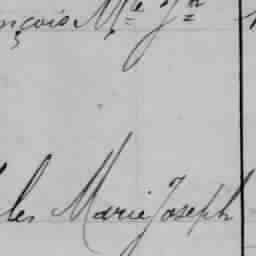 nçois Mle Jh
les Marie Joseph